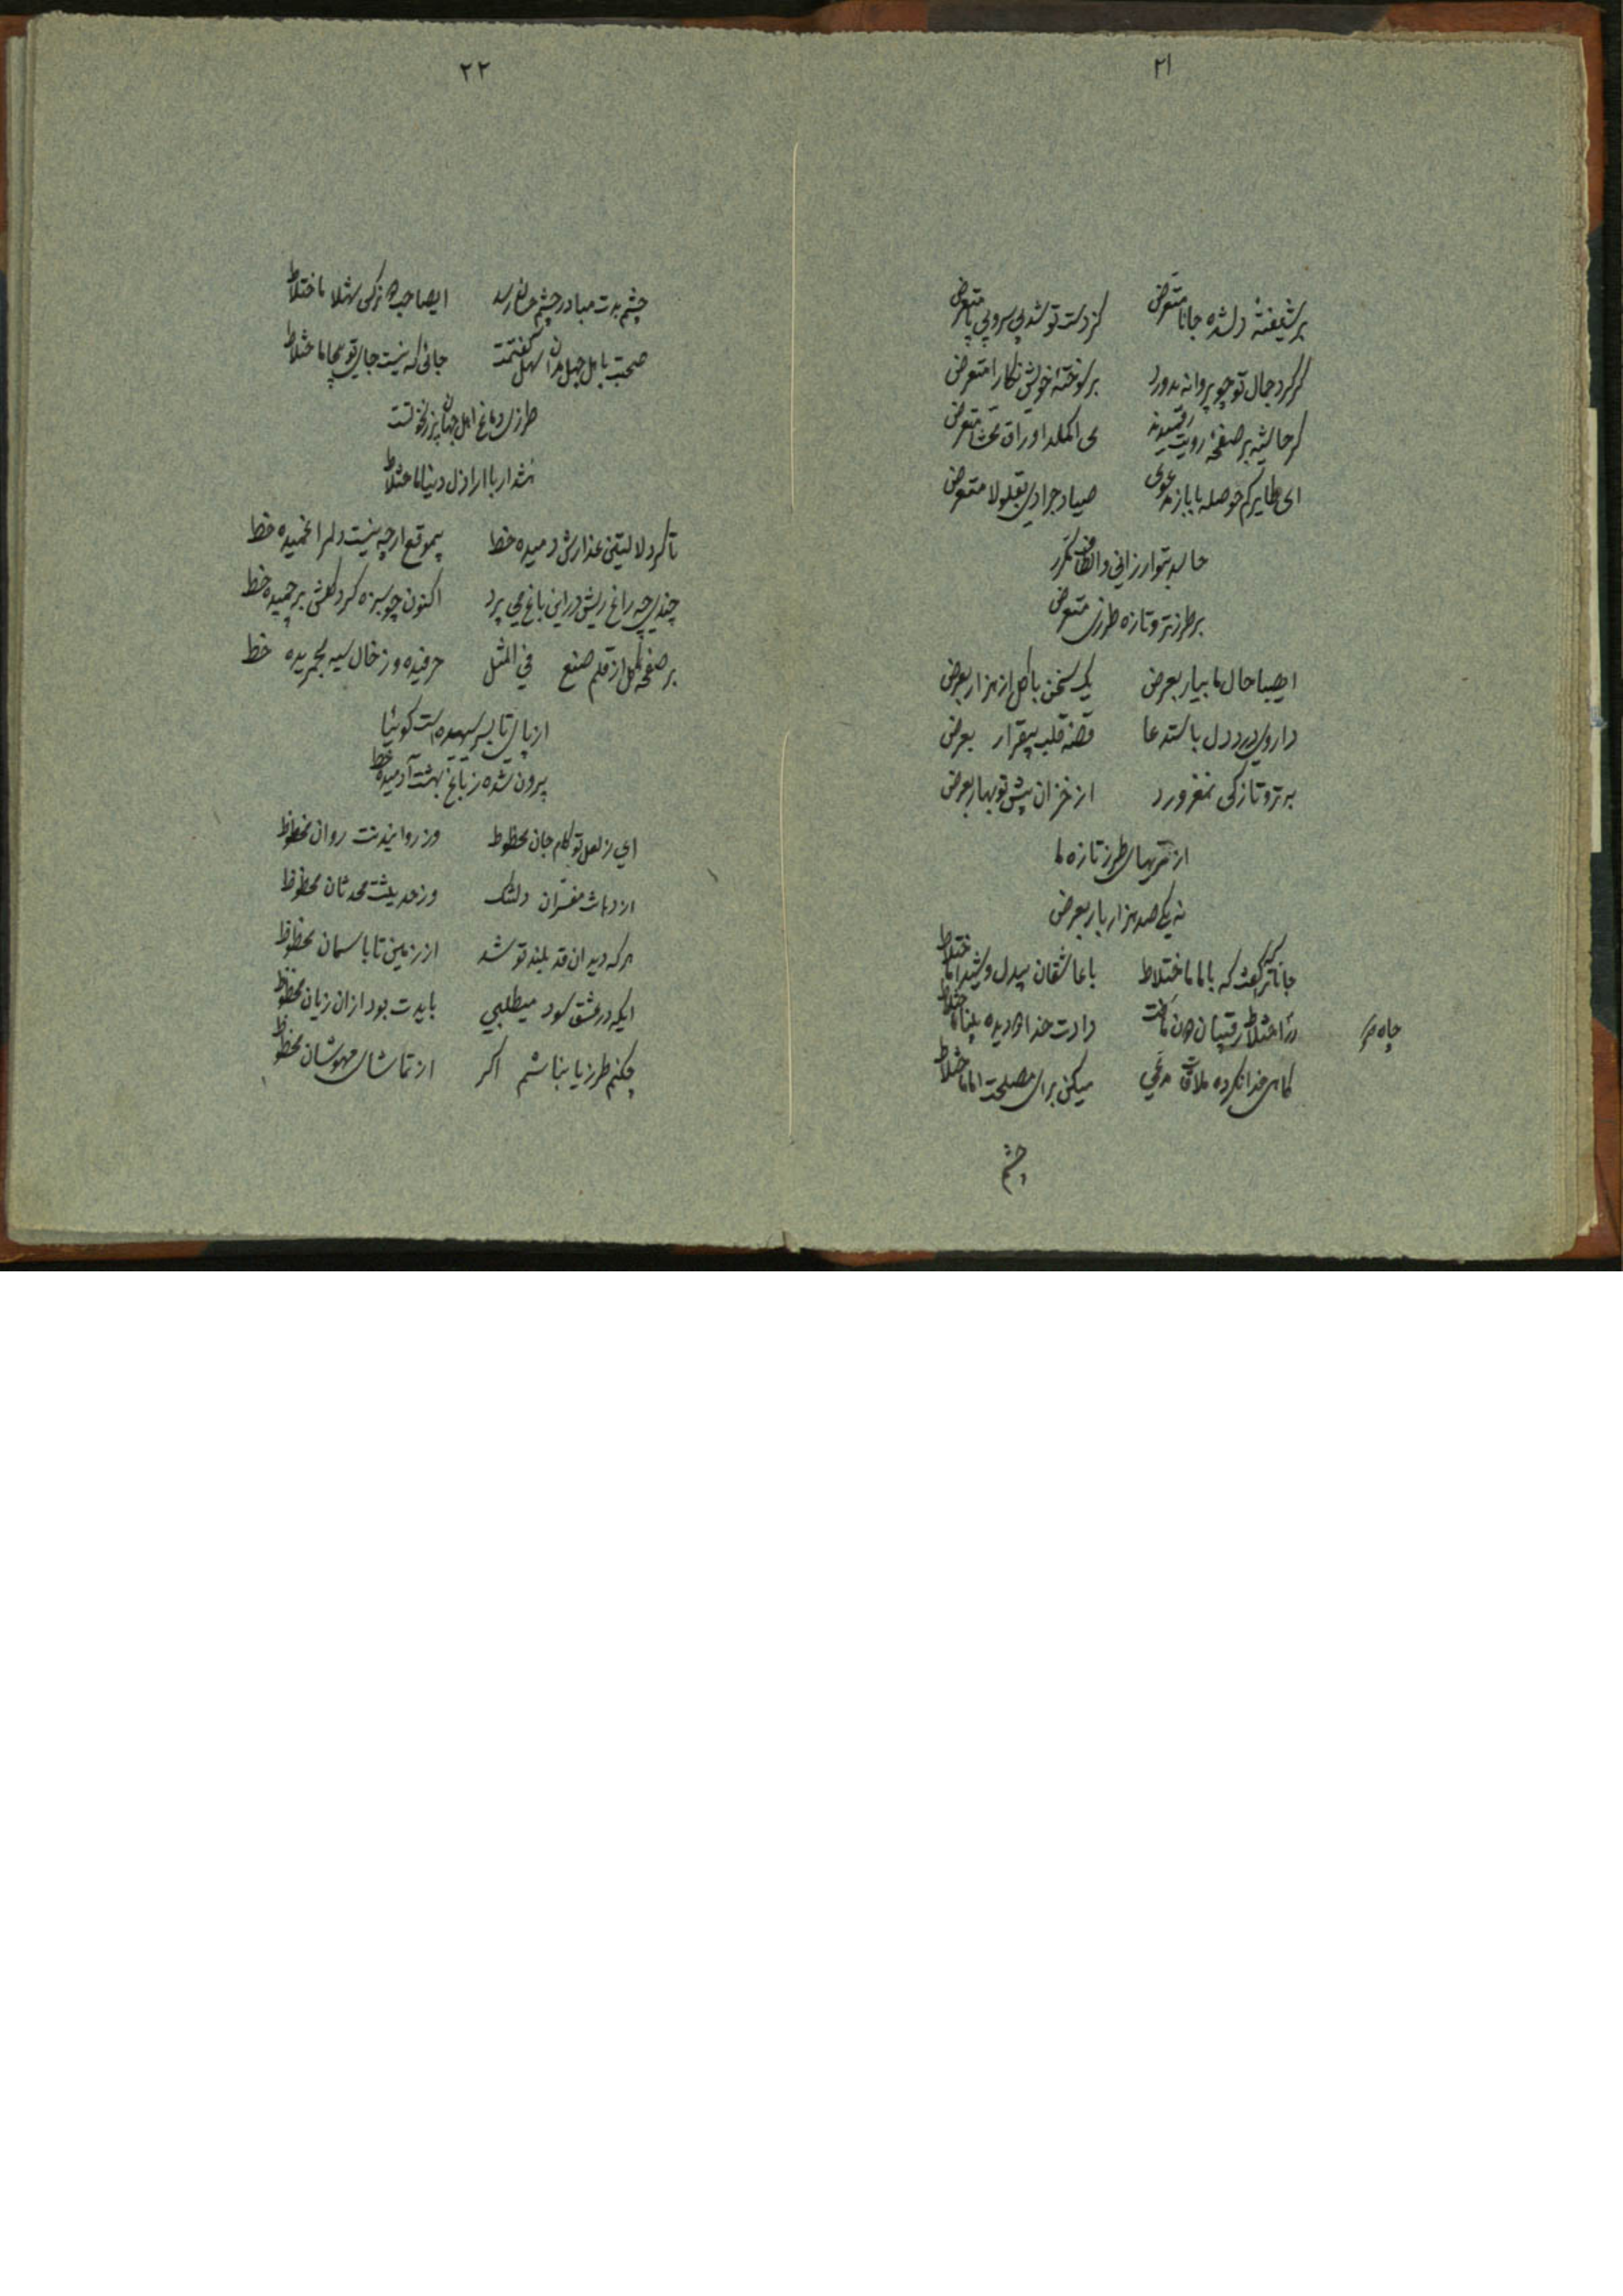 ۲۱
بر شیفتهٔ دلشده جانا متعرض کز دست تو شد بی سر و بی پا متعرض
گر گرد جمال تو چو پروانه بدورد بر سوختهٔ خویش نگارا متعرض
گر حاشیه بر صفحهٔ رویت رقمیدند اوراق متعرض
ای طایر کم حوصله با باز مدعوی صیاد جرادی بقلولا متعرض
حاسد بتو ارزانی و الطاف مکرر
بر طرز تر و تازه طرزی متعرض
ایصبا حال ما بیار بعرض یک سخن با گل از هزار بعرض
داروی درد دل باستدعا قصه قلب بیقرار بعرض
به تر و تازکی نمغرورد از خزان پیش تو بهار بعرض
از تریهای طرز تازه ما
نه یکی صد هزار بار بعرض
جانا که گفت که باما ماختلاط با عاشقان بیدل و شیدا ماختلاط
در اختلاط رقیبان دادت خدا دیده بینا ماختلاط
چاه
گاهی خدا نکرده ملاقات مدعی میکن برای مصلحت اما ماختلاط
چشم
۲۲
چشم بدت مباد در چشم رسد ایصاحب نرگس شهلا ماختلاط
صحبت باهل جهل مدان سهل گفتمت جائی که نیست جای تو بیجا ماختلاط
طرزی دماغ اهل جهان پر ز نخوتست
زنهار با اراذل دنیا ماختلاط
تا گرد لالیین عذارش دمیده خط بیموقع ارچه نیست دلم را غمیده خط
چندی چه راغ ریش در این باغ می پرد اکنون چو سبزه گرد گلش بر چمیده خط
بر صفحه گل از قلم صنع فی المثل حرفیده وز خال سیه بجریده خط
از پای تا بسر سپیده است گوئیا
بیرون شده ز باغ بهشت آدمیده خط
ای ز لعل تو کام جان محظوظ وز روایندنت روان محظوظ
از دهانت مفسران دلتنگ وز حدیثت محدثان محظوظ
هر که دید ان قد بلند تو شد از زمین تا باسمان محظوظ
ایکه در عشق سود میطلبی بایدت بود از ان زیان محظوظ
چکنم طرزیا نباشم اگر از تماشای مهوشان محظوظ